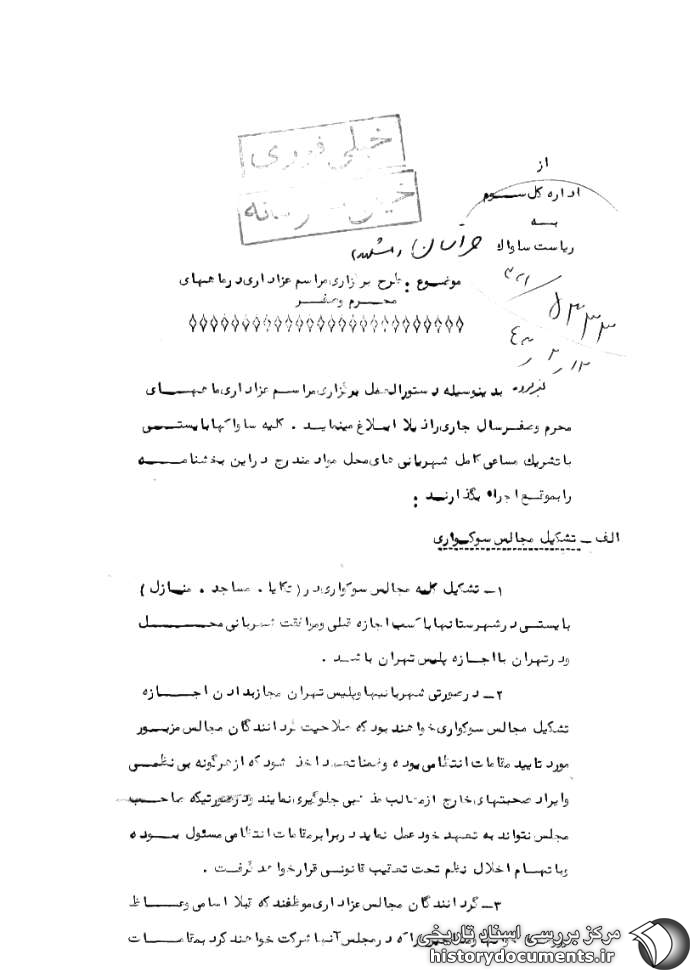 خیلی فوری
خیلی محرمانه
از
اداره کل سوم
به
ریاست ساواک خراسان (مشهد)
۳۲۱/
۵۳۳۳
۴۳/۲/۱۳
موضوع : طرح برگزاری مراسم عزاداری در ماههای
محرم و صفر
بدینوسیله دستورالعمل برگزاری مراسم عزاداری ماههای
محرم و صفر سال جاری را ذیلا ابلاغ مینماید . کلیه ساواکها بایستی
با تشریک مساعی کامل شهربانی های محل مواد مندرج در این بخشنامه
را بموقع اجراء بگذارند :
الف ـ تشکیل مجالس سوگواری
۱ـ تشکیل کلیه مجالس سوگواری در ( تکایا . مساجد . منازل )
بایستی در شهرستانها با کسب اجازه قبلی و موافقت شهربانی محل
و در تهران با اجازه پلیس تهران باشد .
۲ـ در صورتی شهربانیها و پلیس تهران مجاز بدادن اجازه
تشکیل مجالس سوگواری خواهند بود که صلاحیت گردانندگان مجالس مزبور
مورد تایید مقامات انتظامی بوده و ضمنا تعهد اخذ شود که از هرگونه بی نظمی
و ایراد صحبتهای خارج از مطالب مذهبی جلوگیری نمایند و در صورتیکه صاحب
مجلس نتواند به تعهد خود عمل نماید در برابر مقامات انتظامی مسئول بوده
و باتهام اخلال نظم تحت تعقیب قانونی قرار خواهد گرفت .
۳ـ گردانندگان مجالس عزاداری موظفند که قبلا اسامی وعاظ
را که در مجلس آنها شرکت خواهند کرد بمقامات
مرکز بررسی اسناد تاریخی
historydocuments.ir